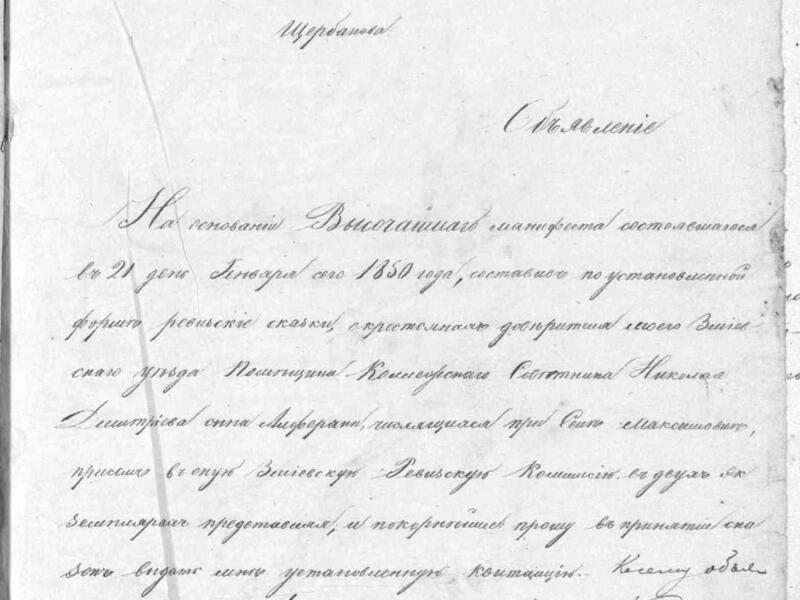 Щербакова
Объявленіе
На основаніи Высочайшаго манифеста состоявшагося
въ 21 день Генваря сего 1850 года, составивъ по установленной
формѣ ревизскіе сказки, о крестьянахъ довѣрителя моего Зміев
скаго уѣзда Помѣщика Коллежскаго Совѣтника Николая
Дмитріева сына Алферапи, числящихся при Селѣ Максимовкѣ,
присемъ въ оную Зміевскую Ревизскую Коммисію въ двухъ эк
земплярахъ представляя, и покорнѣйше прошу въ принятіи ска
зокъ выдать мнѣ установленную квитанцію. – Ксему объя